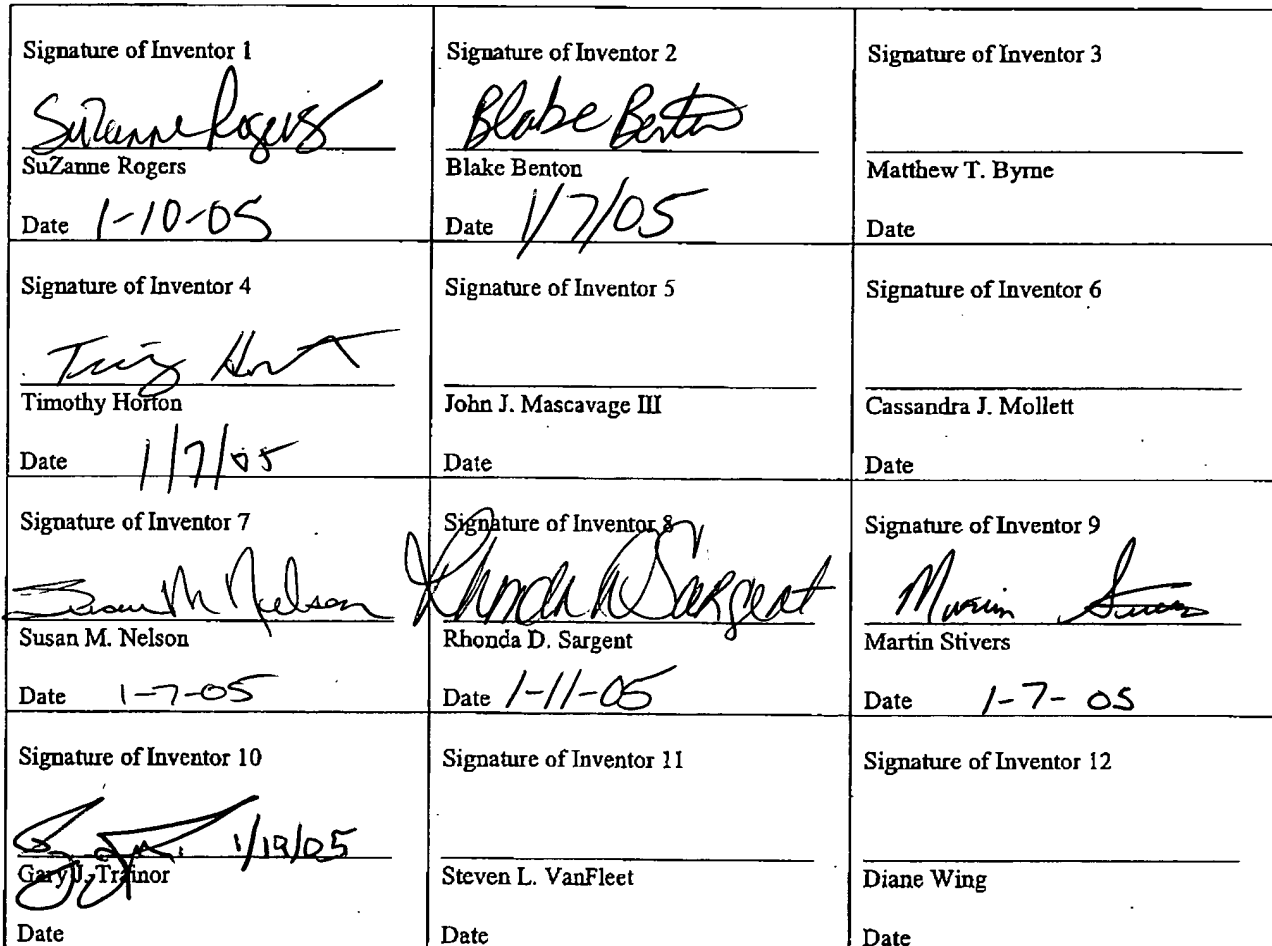 Signature of Inventor 1
SuZanne Rogers
SuZanne Rogers
Date 1-10-05
Signature of Inventor 2
Blake Benton
Blake Benton
Date 1/7/05
Signature of Inventor 3
Matthew T. Byrne
Date
Signature of Inventor 4
Horton
Timothy Horton
Date 1/7/05
Signature of Inventor 5
John J. Mascavage III
Date
Signature of Inventor 6
Cassandra J. Mollett
Date
Signature of Inventor 7
Susan M Nelson
Susan M. Nelson
Date 1-7-05
Signature of Inventor 8
Rhonda D Sargent
Rhonda D. Sargent
Date 1-11-05
Signature of Inventor 9
Martin Stivers
Martin Stivers
Date 1-7-05
Signature of Inventor 10
1/19/05
Gary J. Trainor
Date
Signature of Inventor 11
Steven L. VanFleet
Date
Signature of Inventor 12
Diane Wing
Date